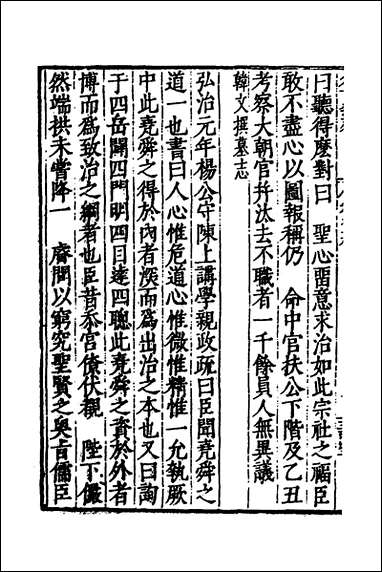 曰聽得麽對曰　聖心畱意求治如此宗社之福臣
敢不盡心以圖報稱仍　命中官扶公下階及乙丑
考察大朝官幷汰去不職者一千餘員人無異議
韓文撰墓志
弘治元年楊公守陳上講學親政疏曰臣聞堯舜之
道一也書曰人心惟危道心惟微惟精惟一允執厥
中此堯舜之得於內者深而爲出治之本也又曰詢
于四岳闢四門明四目達四聰此堯舜之資於外者
博而爲致治之綱者也臣昔忝宮僚伏覩　陛下儼
然端拱未嘗降一　睿問以窮究聖賢之奧旨儒臣